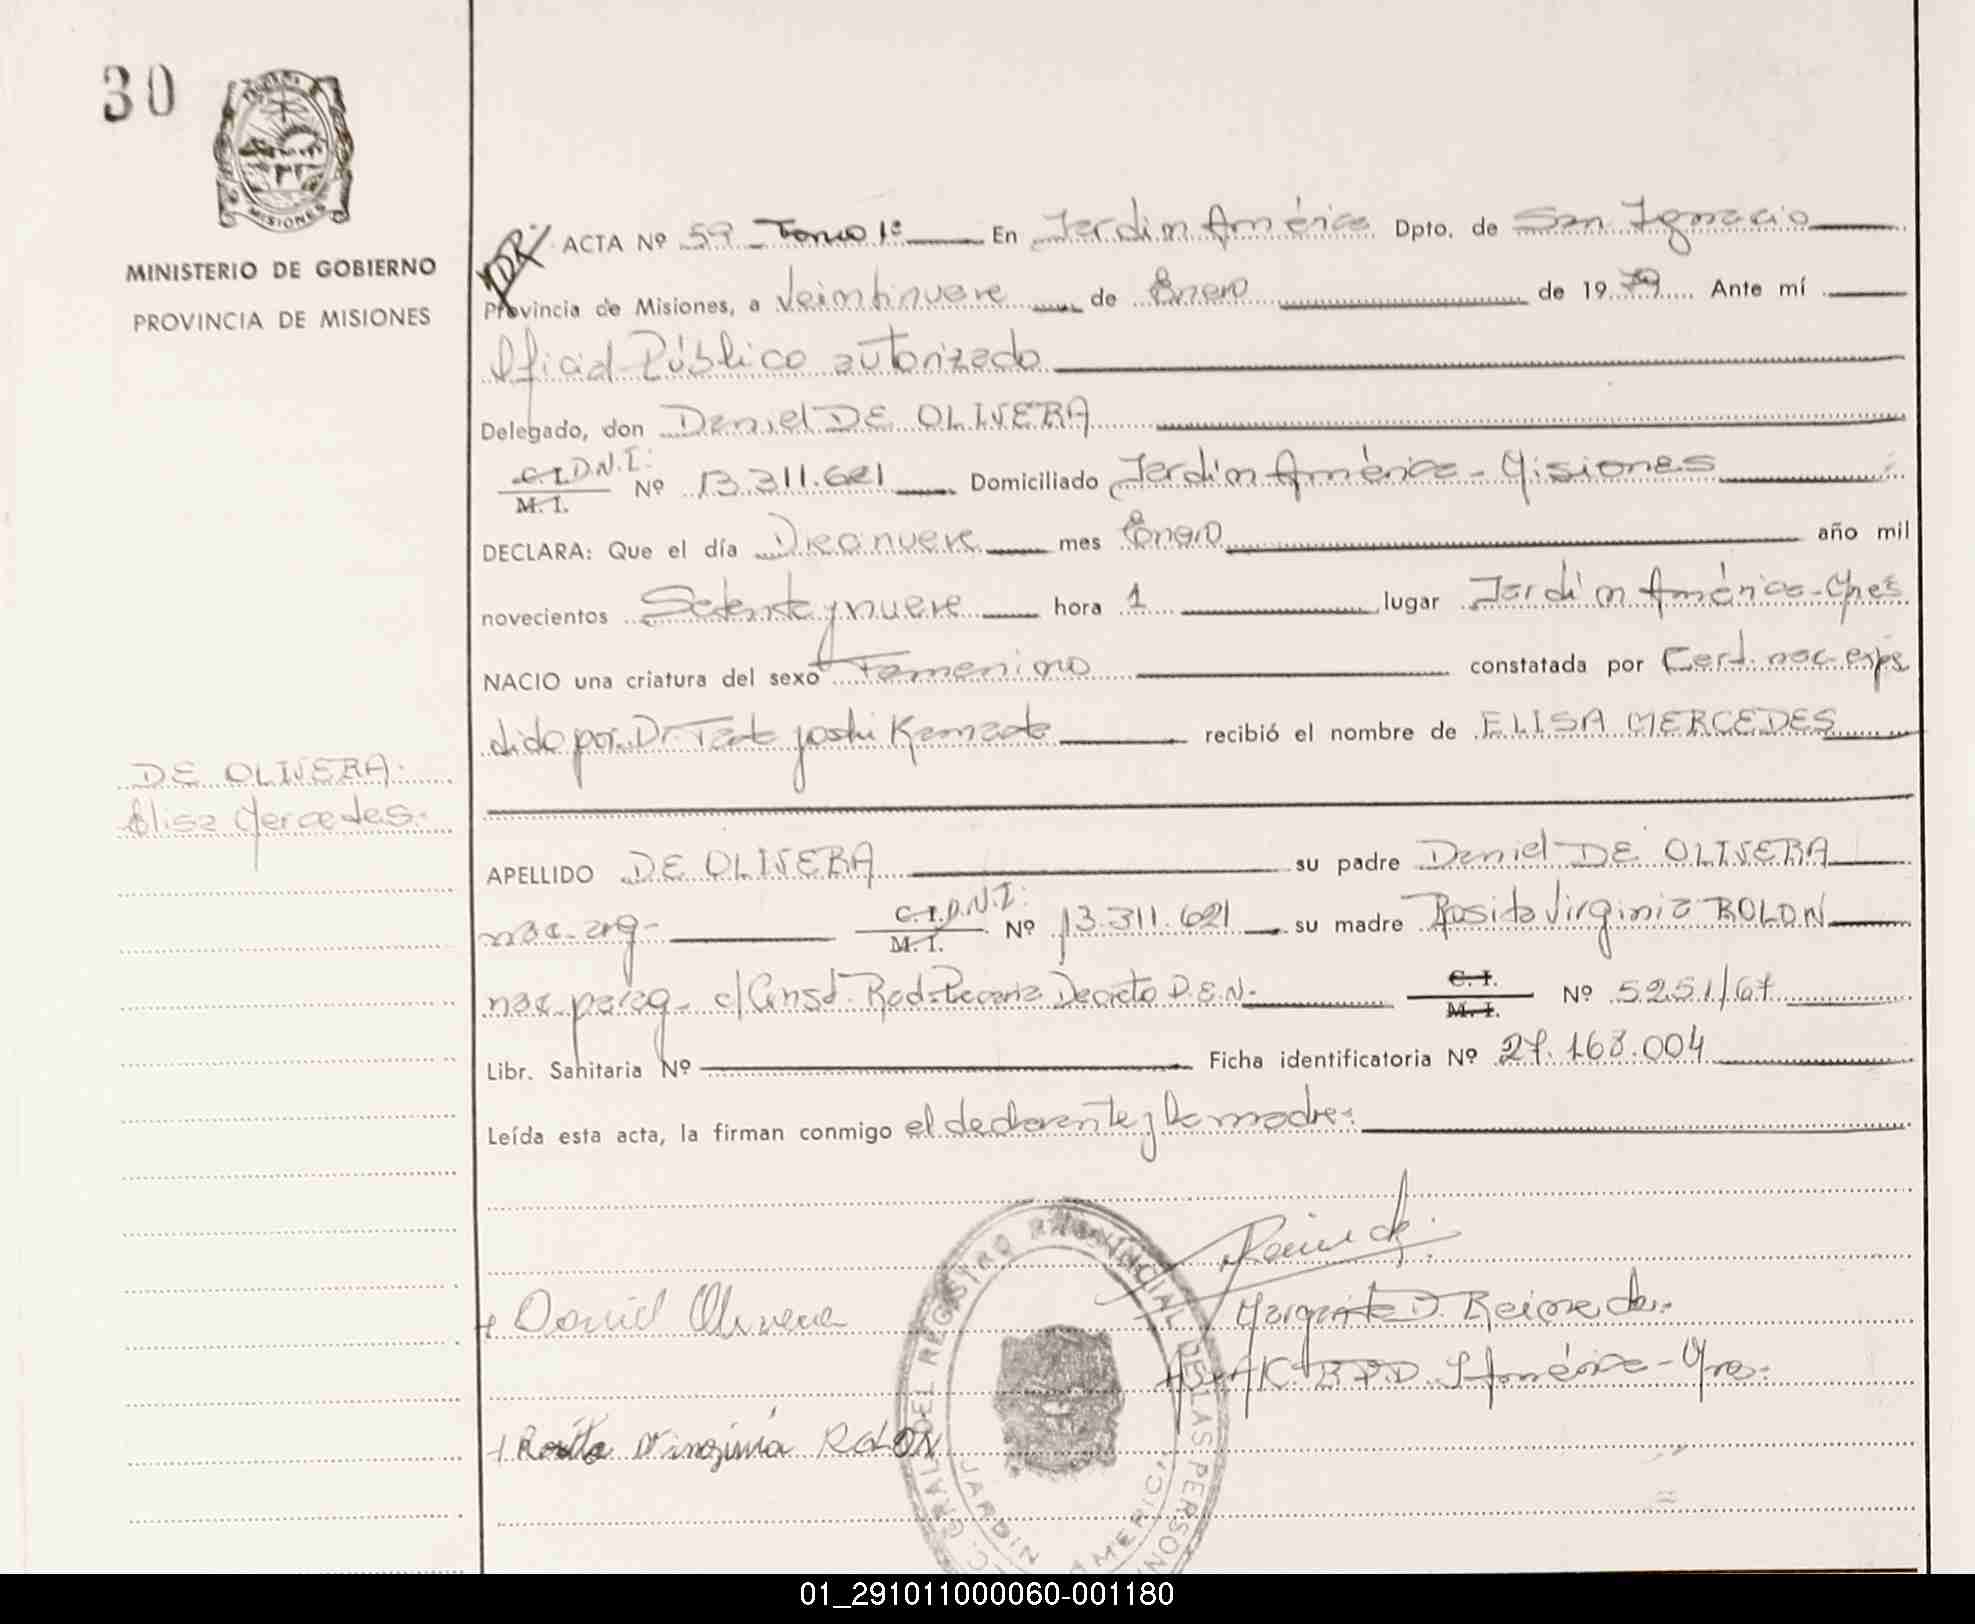 30
MISIONES
MINISTERIO DE GOBIERNO
PROVINCIA DE MISIONES
ACTA Nº 59 Tomo 1º En Jardin América Dpto. de San Ignacio
Provincia de Misiones, a veintinueve de Enero de 1979 Ante mí
Oficial Público autorizado
Delegado, don Daniel DE OLIVERA
C.I. D.N.I. M. I. Nº 13.311.621 Domiciliado Jardín América - Misiones
DECLARA: Que el día Diecinueve mes Enero año mil
novecientos Setenta y nueve hora 1 lugar Jardín América - Mnes
NACIO una criatura del sexo Femenino constatada por Cert. nac. expe
dido por Dr yoshi recibió el nombre de ELISA MERCEDES
DE OLIVERA
Elisa Mercedes.
APELLIDO DE OLIVERA su padre Daniel DE OLIVERA
nac. arg- C.I. D.N.I: M. I. Nº 13.311.621 su madre Rosita Virginia ROLON
nac. parag- c/Const. Rad. Precaria Decreto P.E.N- C.I. M. I. Nº 5251/67
Libr. Sanitaria Nº Ficha identificatoria Nº 27.163.004
Leída esta acta, la firman conmigo el declarante y la madre:
Daniel Olivera
Margarita D.
J. América - Mnes:
Rosita Virginia ROLON
GRAL. DEL REGISTRO PROVINCIAL DE LAS PERSONAS
JARDIN AMERICA
01_291011000060-001180